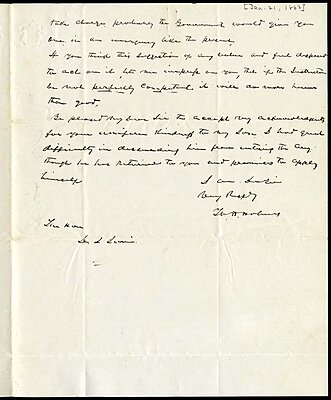 [Jan. 21, 1862]
take charge, probably the Government would give you
one in an emergency like the present.
If you think this suggestion of any value and feel disposed
to act on it let me impress on you, that if the Instructor
be not perfectly competent, it will do more harm
than good.
Be pleased My Dear Sir to accept my acknowledgements
for your uniform kindness to my Son. I had great
difficulty in dissuading him from entering the Army
though he has returned to you and promises to apply
himself
I am Dr Sir
Very Respty
Th. H. Holmes
The Hon
D. L. Swain